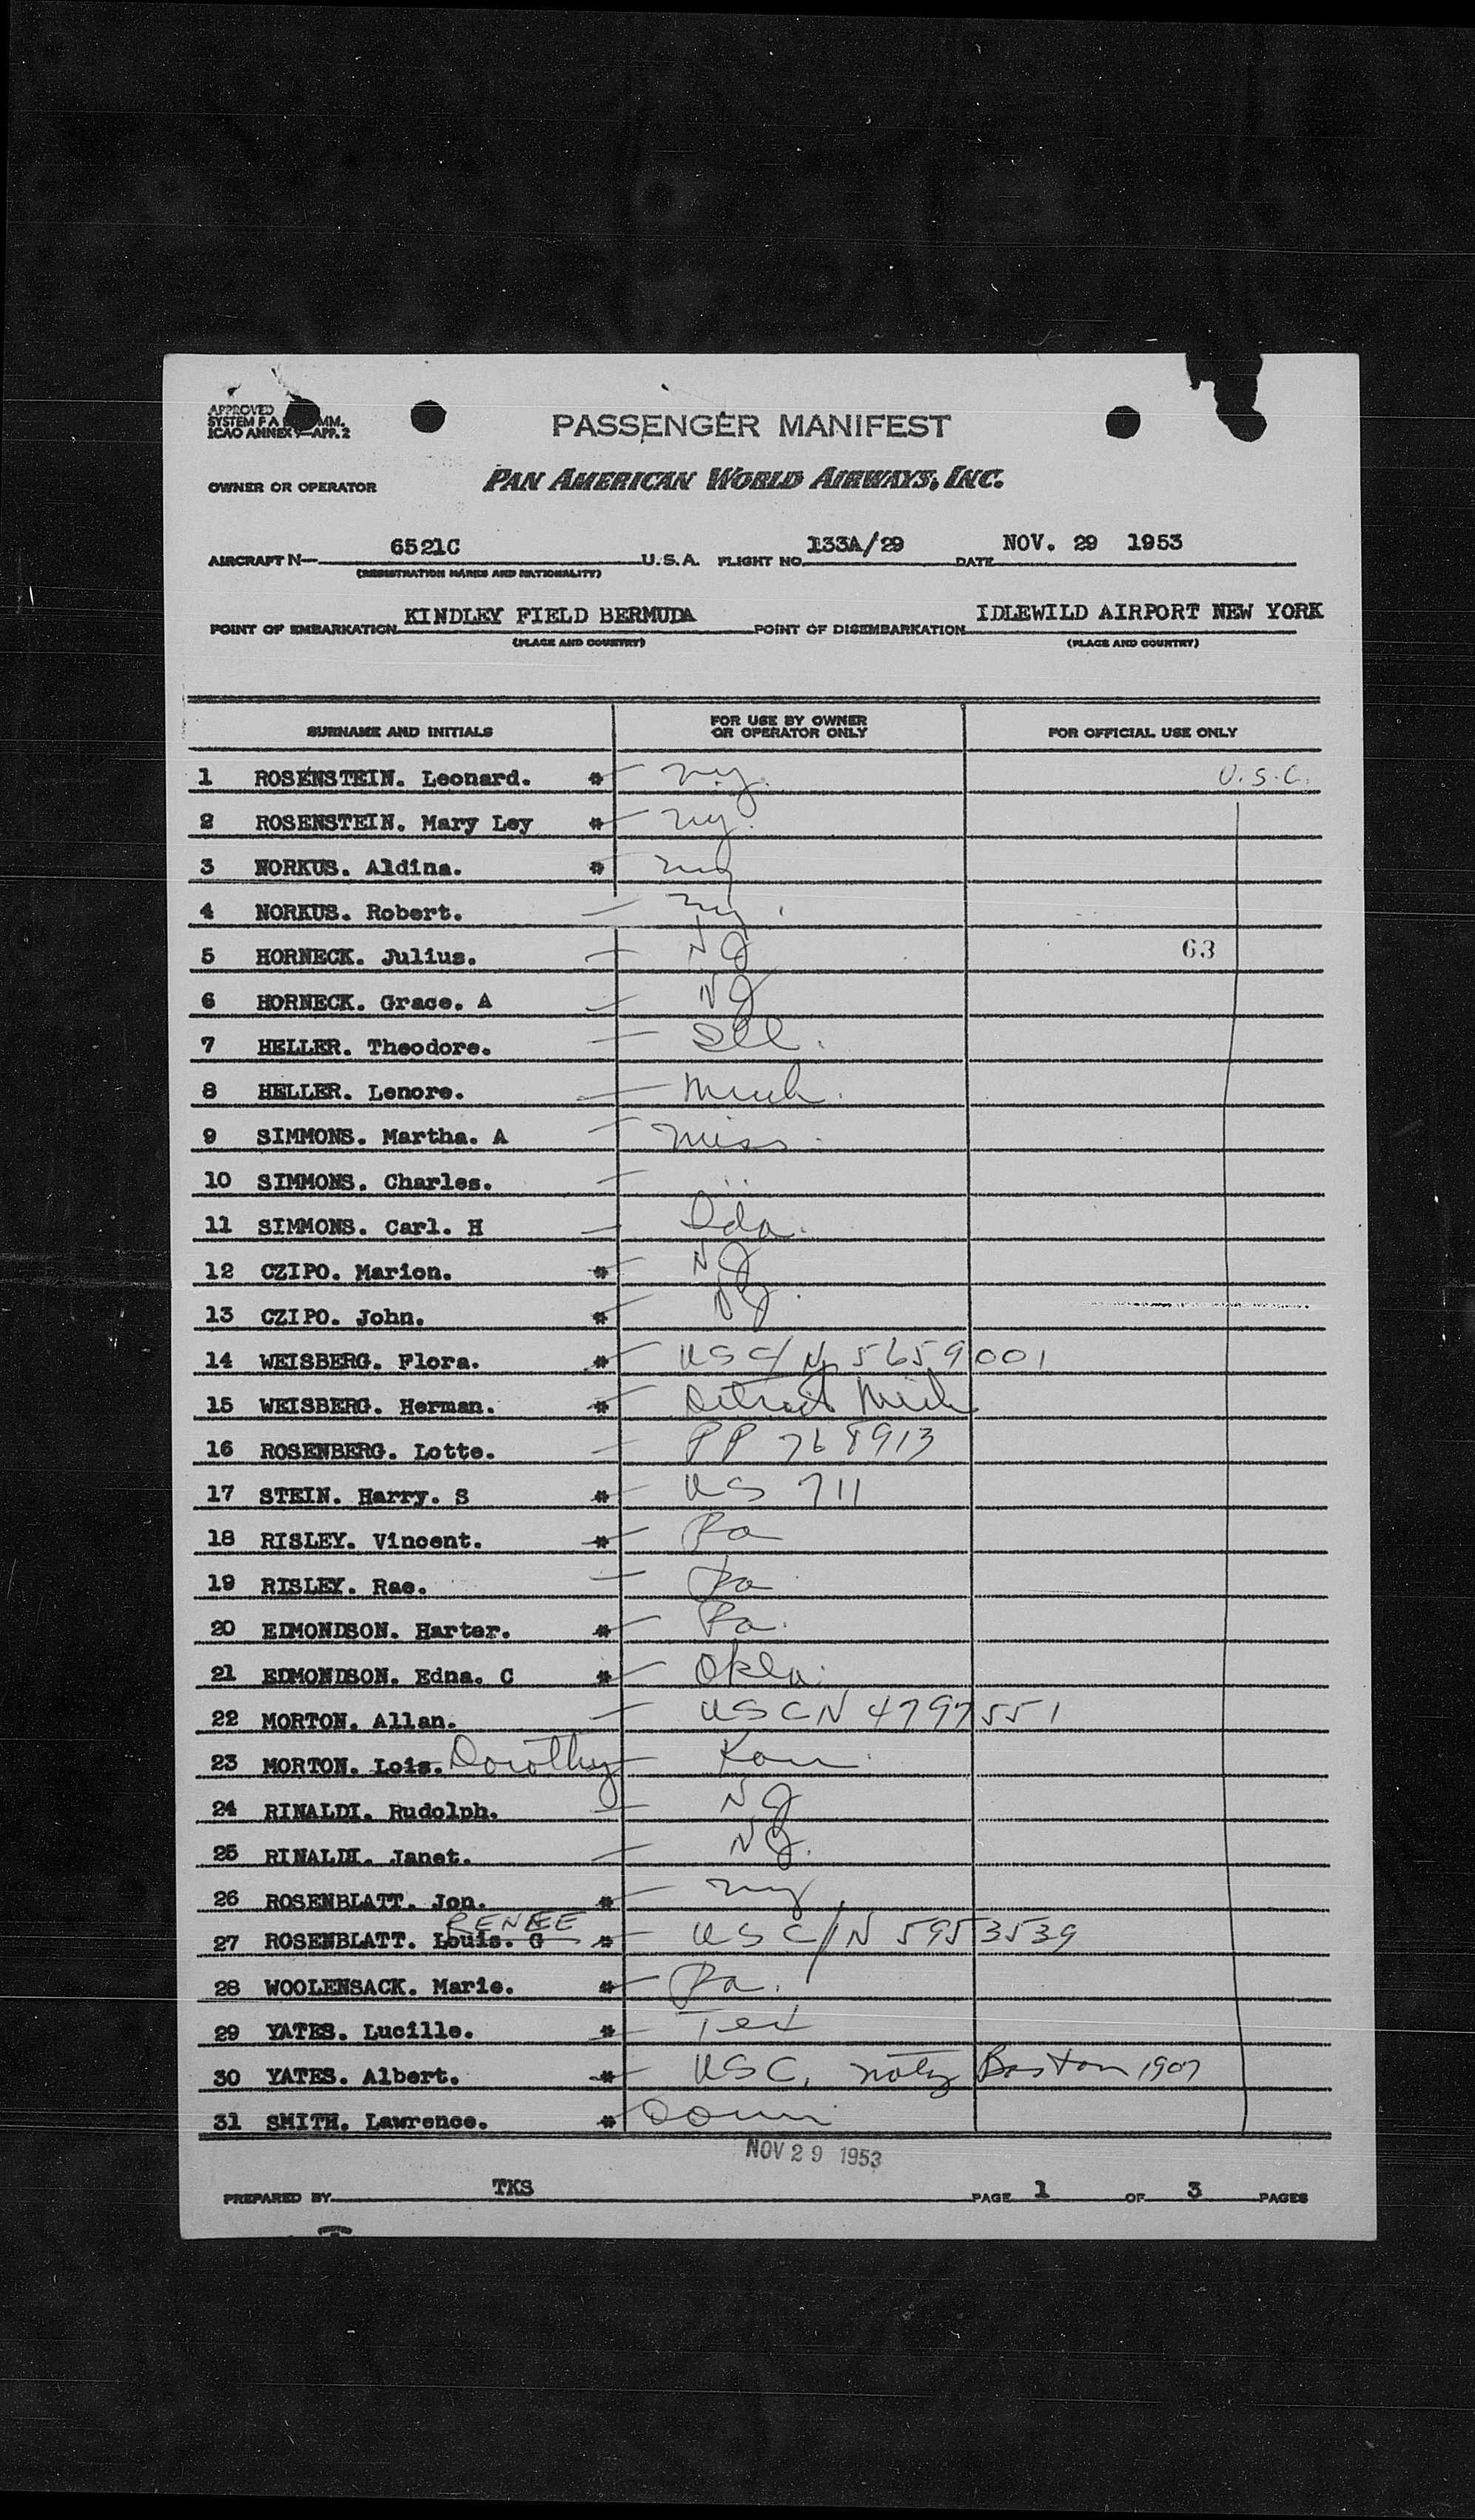 APPROVED
SYSTEM P A MM.
ICAO ANNEX 9—APP. 2
PASSENGER MANIFEST
OWNER OR OPERATOR PAN AMERICAN WORLD AIRWAYS, INC.
AIRCRAFT N— 6521C U.S.A. FLIGHT NO. 133A/29 DATE NOV. 29 1953
(REGISTRATION MARKS AND NATIONALITY)
POINT OF EMBARKATION KINDLEY FIELD BERMUDA POINT OF DISEMBARKATION IDLEWILD AIRPORT NEW YORK
(PLACE AND COUNTRY) (PLACE AND COUNTRY)
SURNAME AND INITIALS FOR USE BY OWNER OR OPERATOR ONLY FOR OFFICIAL USE ONLY
1 ROSENSTEIN. Leonard. * ny. U.S.C.
2 ROSENSTEIN. Mary Ley * ny.
3 NORKUS. Aldina. * ny
4 NORKUS. Robert. ny.
5 HORNECK. Julius. NJ 63
6 HORNECK. Grace. A NJ
7 HELLER. Theodore. Ill.
8 HELLER. Lenore. Mich.
9 SIMMONS. Martha. A Miss.
10 SIMMONS. Charles. "
11 SIMMONS. Carl. H Ida.
12 CZIPO. Marion. * NJ
13 CZIPO. John. * NJ.
14 WEISBERG. Flora. * USC/N 5659001
15 WEISBERG. Herman. * Detroit Mich
16 ROSENBERG. Lotte. PP 768913
17 STEIN. Harry. S * US 711
18 RISLEY. Vincent. * Pa
19 RISLEY. Rae. Pa
20 EDMONDSON. Harter. * Pa.
21 EDMONDSON. Edna. C * Okla.
22 MORTON. Allan. USCN 4797551
23 MORTON. Lois. Dorothy Kan.
24 RINALDI. Rudolph. NJ
25 RINALDI. Janet. NJ.
26 ROSENBLATT. Jon. * ny
RENEE
27 ROSENBLATT. Louis. G * USC/N 5953539
28 WOOLENSACK. Marie. * Pa.
29 YATES. Lucille. * Tex
30 YATES. Albert. * USC, Boston 1907
31 SMITH. Lawrence. * Conn.
NOV 29 1953
PREPARED BY TKS PAGE 1 OF 3 PAGES